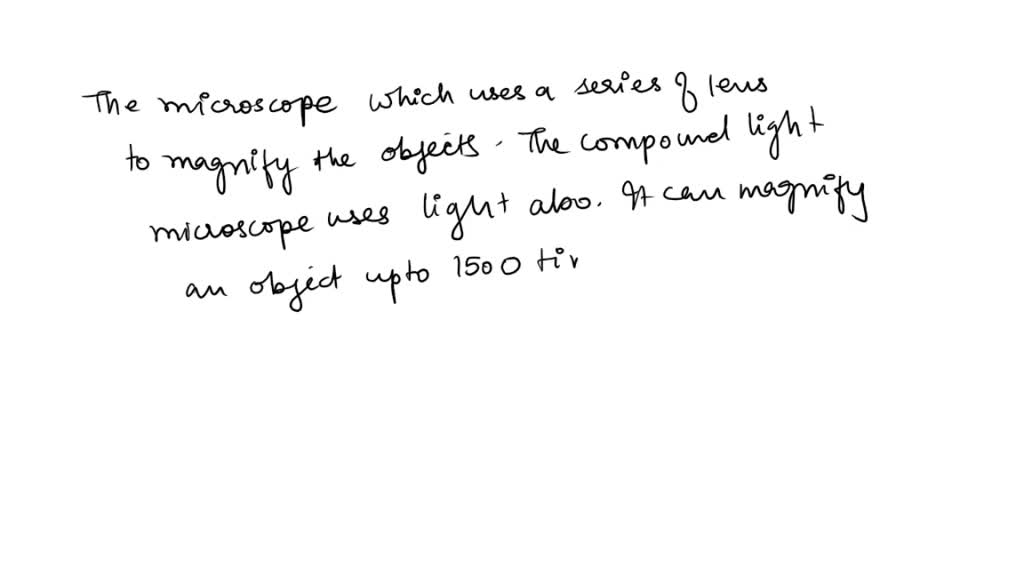 The microscope which uses a series of lens
to magnify the objects. The compound light
microscope uses light also. It can magnify
an object upto 1500 tir